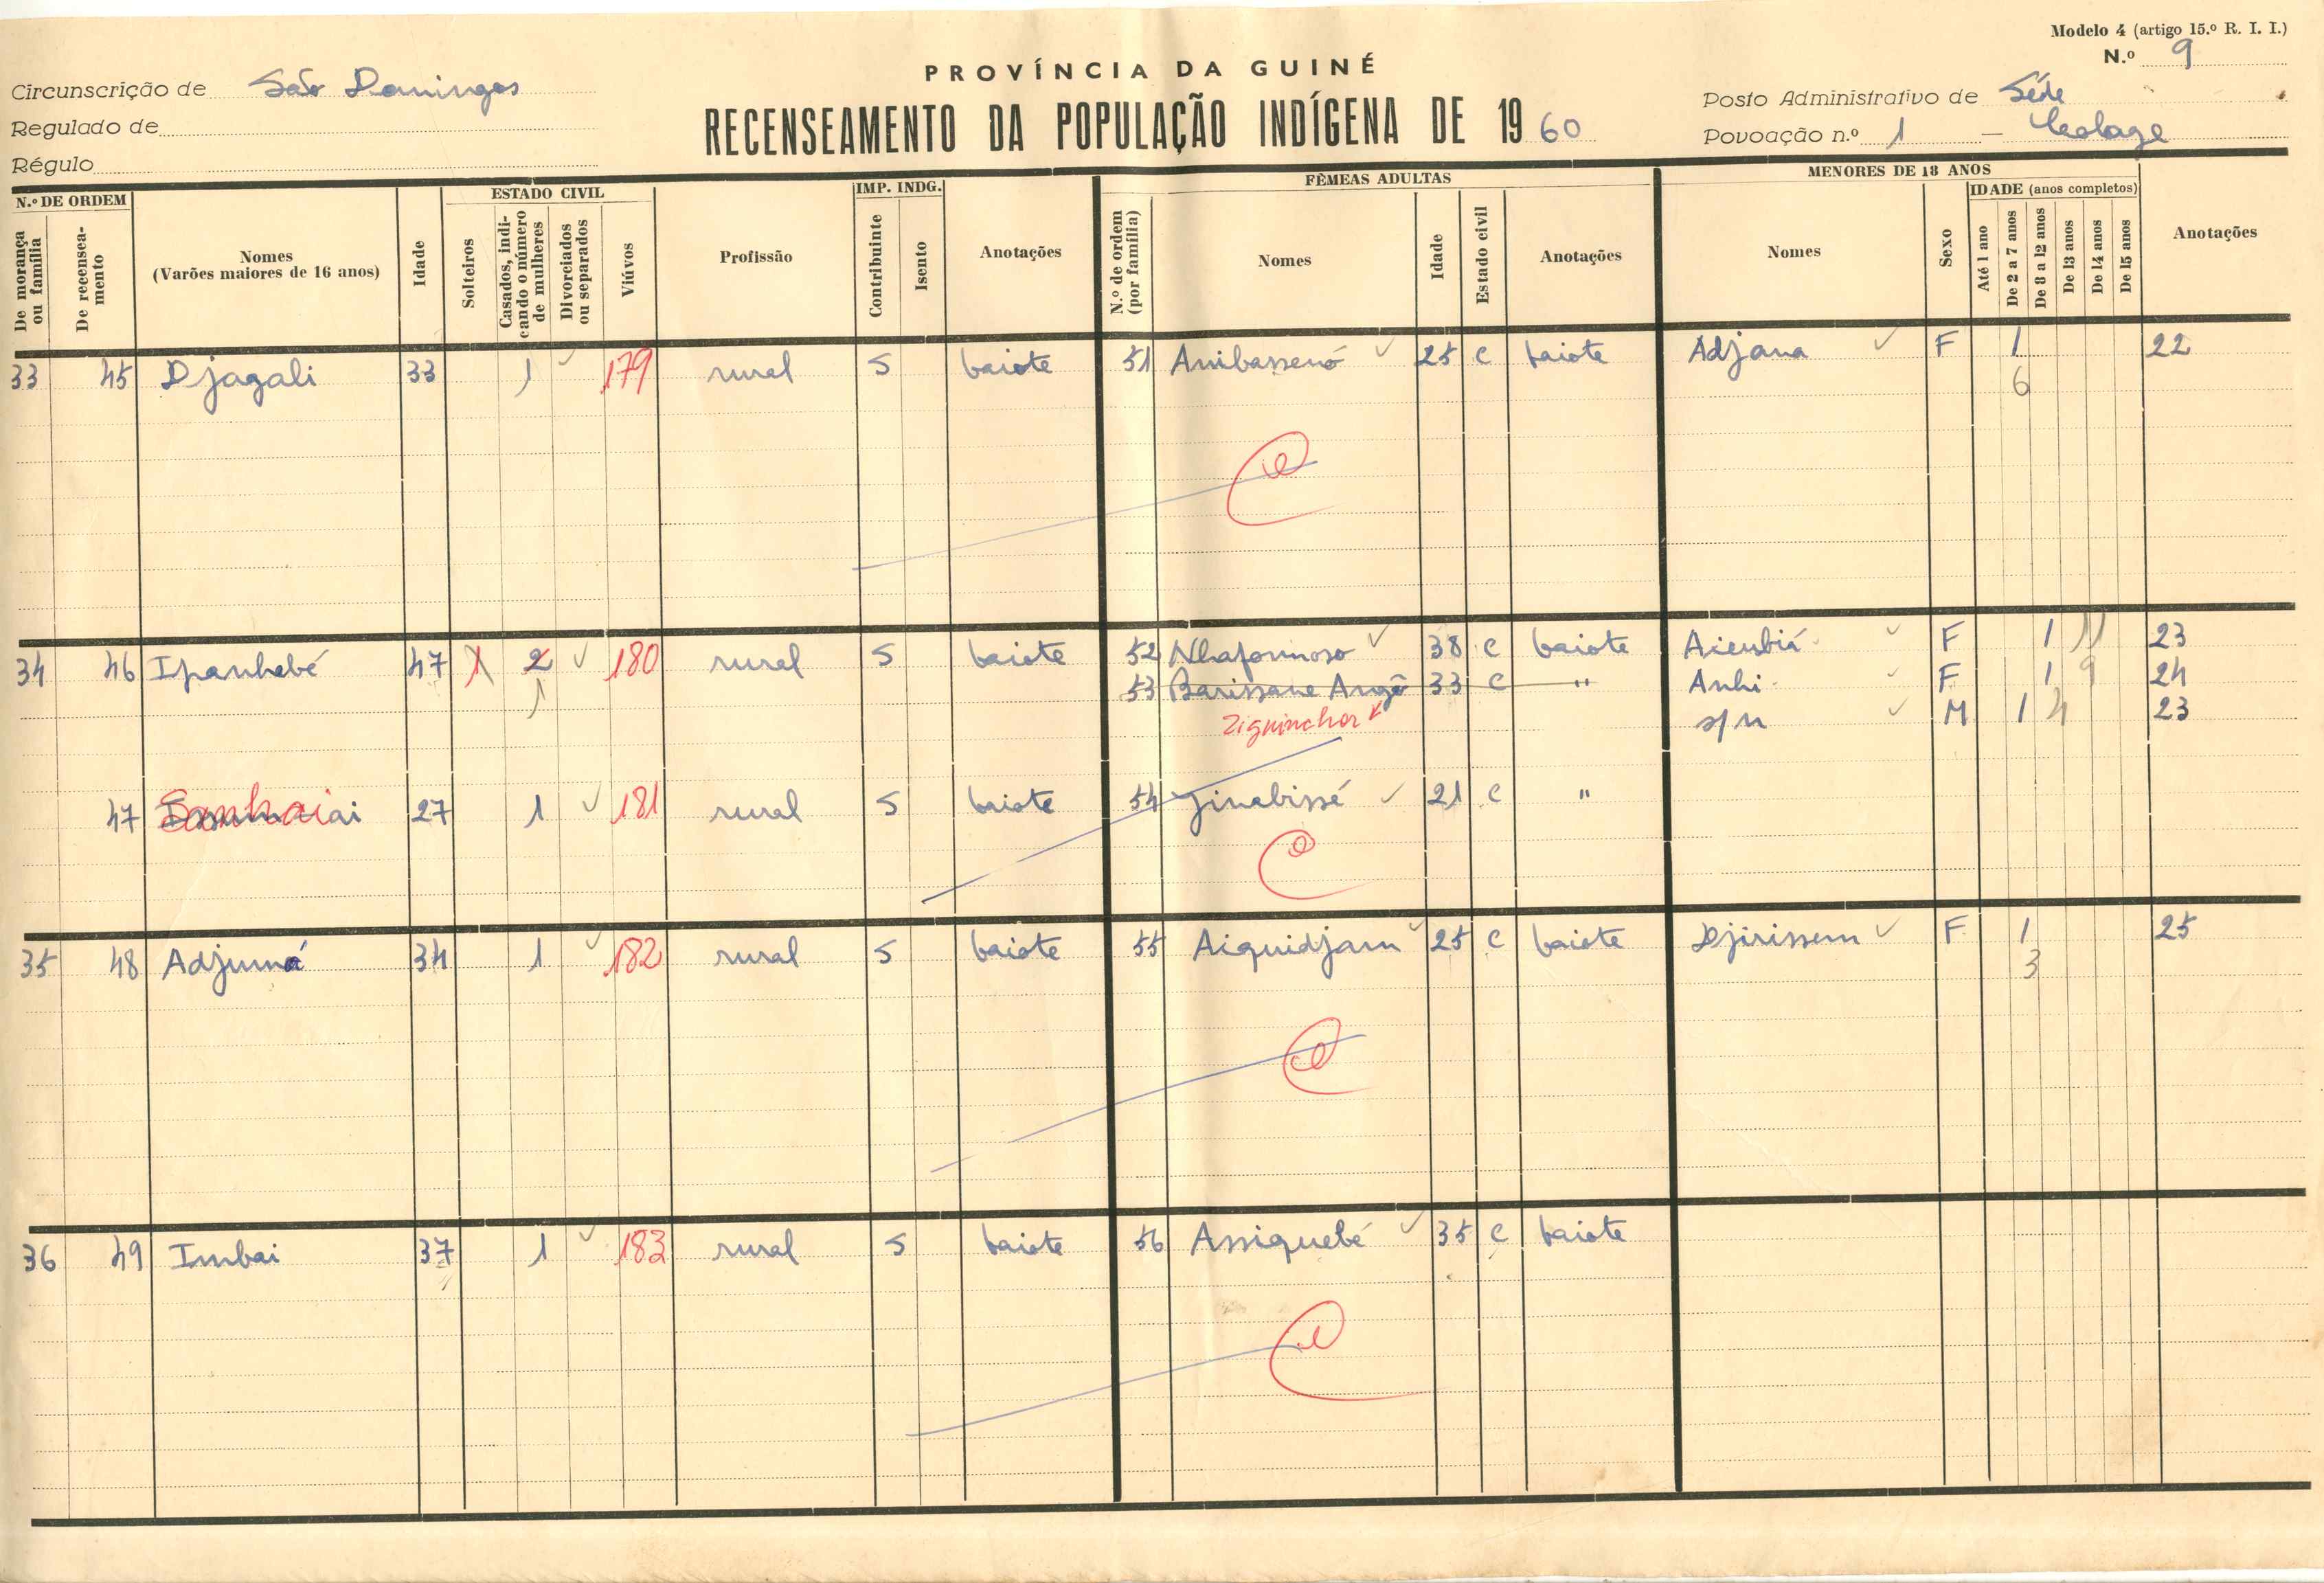 Modelo 4 (artigo 15.º R. I. I.)
N.º 9
PROVÍNCIA DA GUINÉ
RECENSEAMENTO DA POPULAÇÃO INDÍGENA DE 1960
Circunscrição de São Domingos
Regulado de
Régulo
Posto Administrativo de Séde
Povoação n.º 1 –
N.º DE ORDEM
De morança ou família
De recenseamento
Nomes
(Varões maiores de 16 anos)
Idade
ESTADO CIVIL
Solteiros
Casados, indicando o número de mulheres
Divorciados ou separados
Viúvos
Profissão
IMP. INDG.
Contribuinte
Isento
Anotações
FÊMEAS ADULTAS
N.º de ordem (por família)
Nomes
Idade
Estado civil
Anotações
MENORES DE 18 ANOS
Nomes
Sexo
IDADE (anos completos)
Até 1 ano
De 2 a 7 anos
De 8 a 12 anos
De 13 anos
De 14 anos
De 15 anos
Anotações
33 45 Djagali 33 1 179 rural S baiote 51 Anibassenó 25 c baiote Adjana F 1 22
6
34 46 Ipanhebé 47 1 2 180 rural S baiote 52 Nhaformoso 38 c baiote Aienbiá F 1 11 23
1 53 Barissane Angô 33 c " Anhi F 1 9 24
Ziguinchor s/n M 1 4 23
47 27 1 181 rural S baiote 54 Jinabissé 21 c "
35 48 Adjumá 34 1 182 rural S baiote 55 Aiquidjam 25 c baiote Djirissem F 1 25
3
36 49 Imbai 37 1 183 rural S baiote 56 Assiquebé 35 c baiote